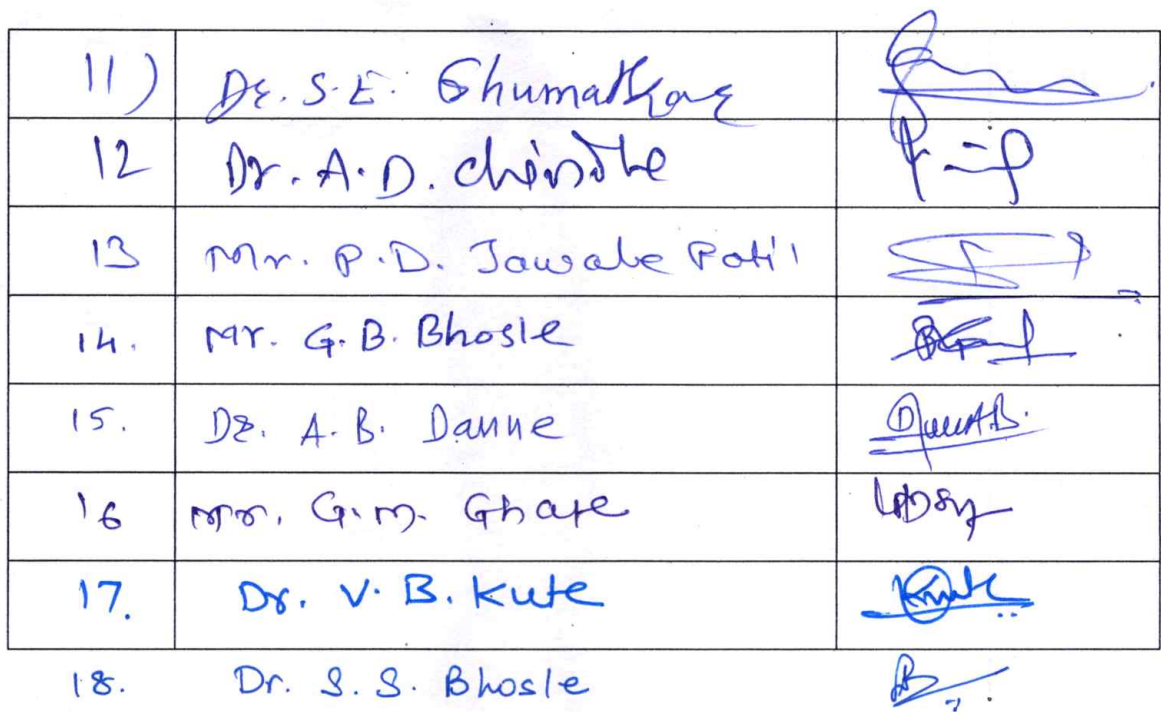 11) Dr. S.E. Ghumatkar
12 Dr. A.D. Chindhe
13 Mr. P.D. Jawale Patil
14. Mr. G.B. Bhosle
15. Dr. A.B. Danne
16 Mr. G.M. Ghate
17. Dr. V.B. Kute
18. Dr. S.S. Bhosle